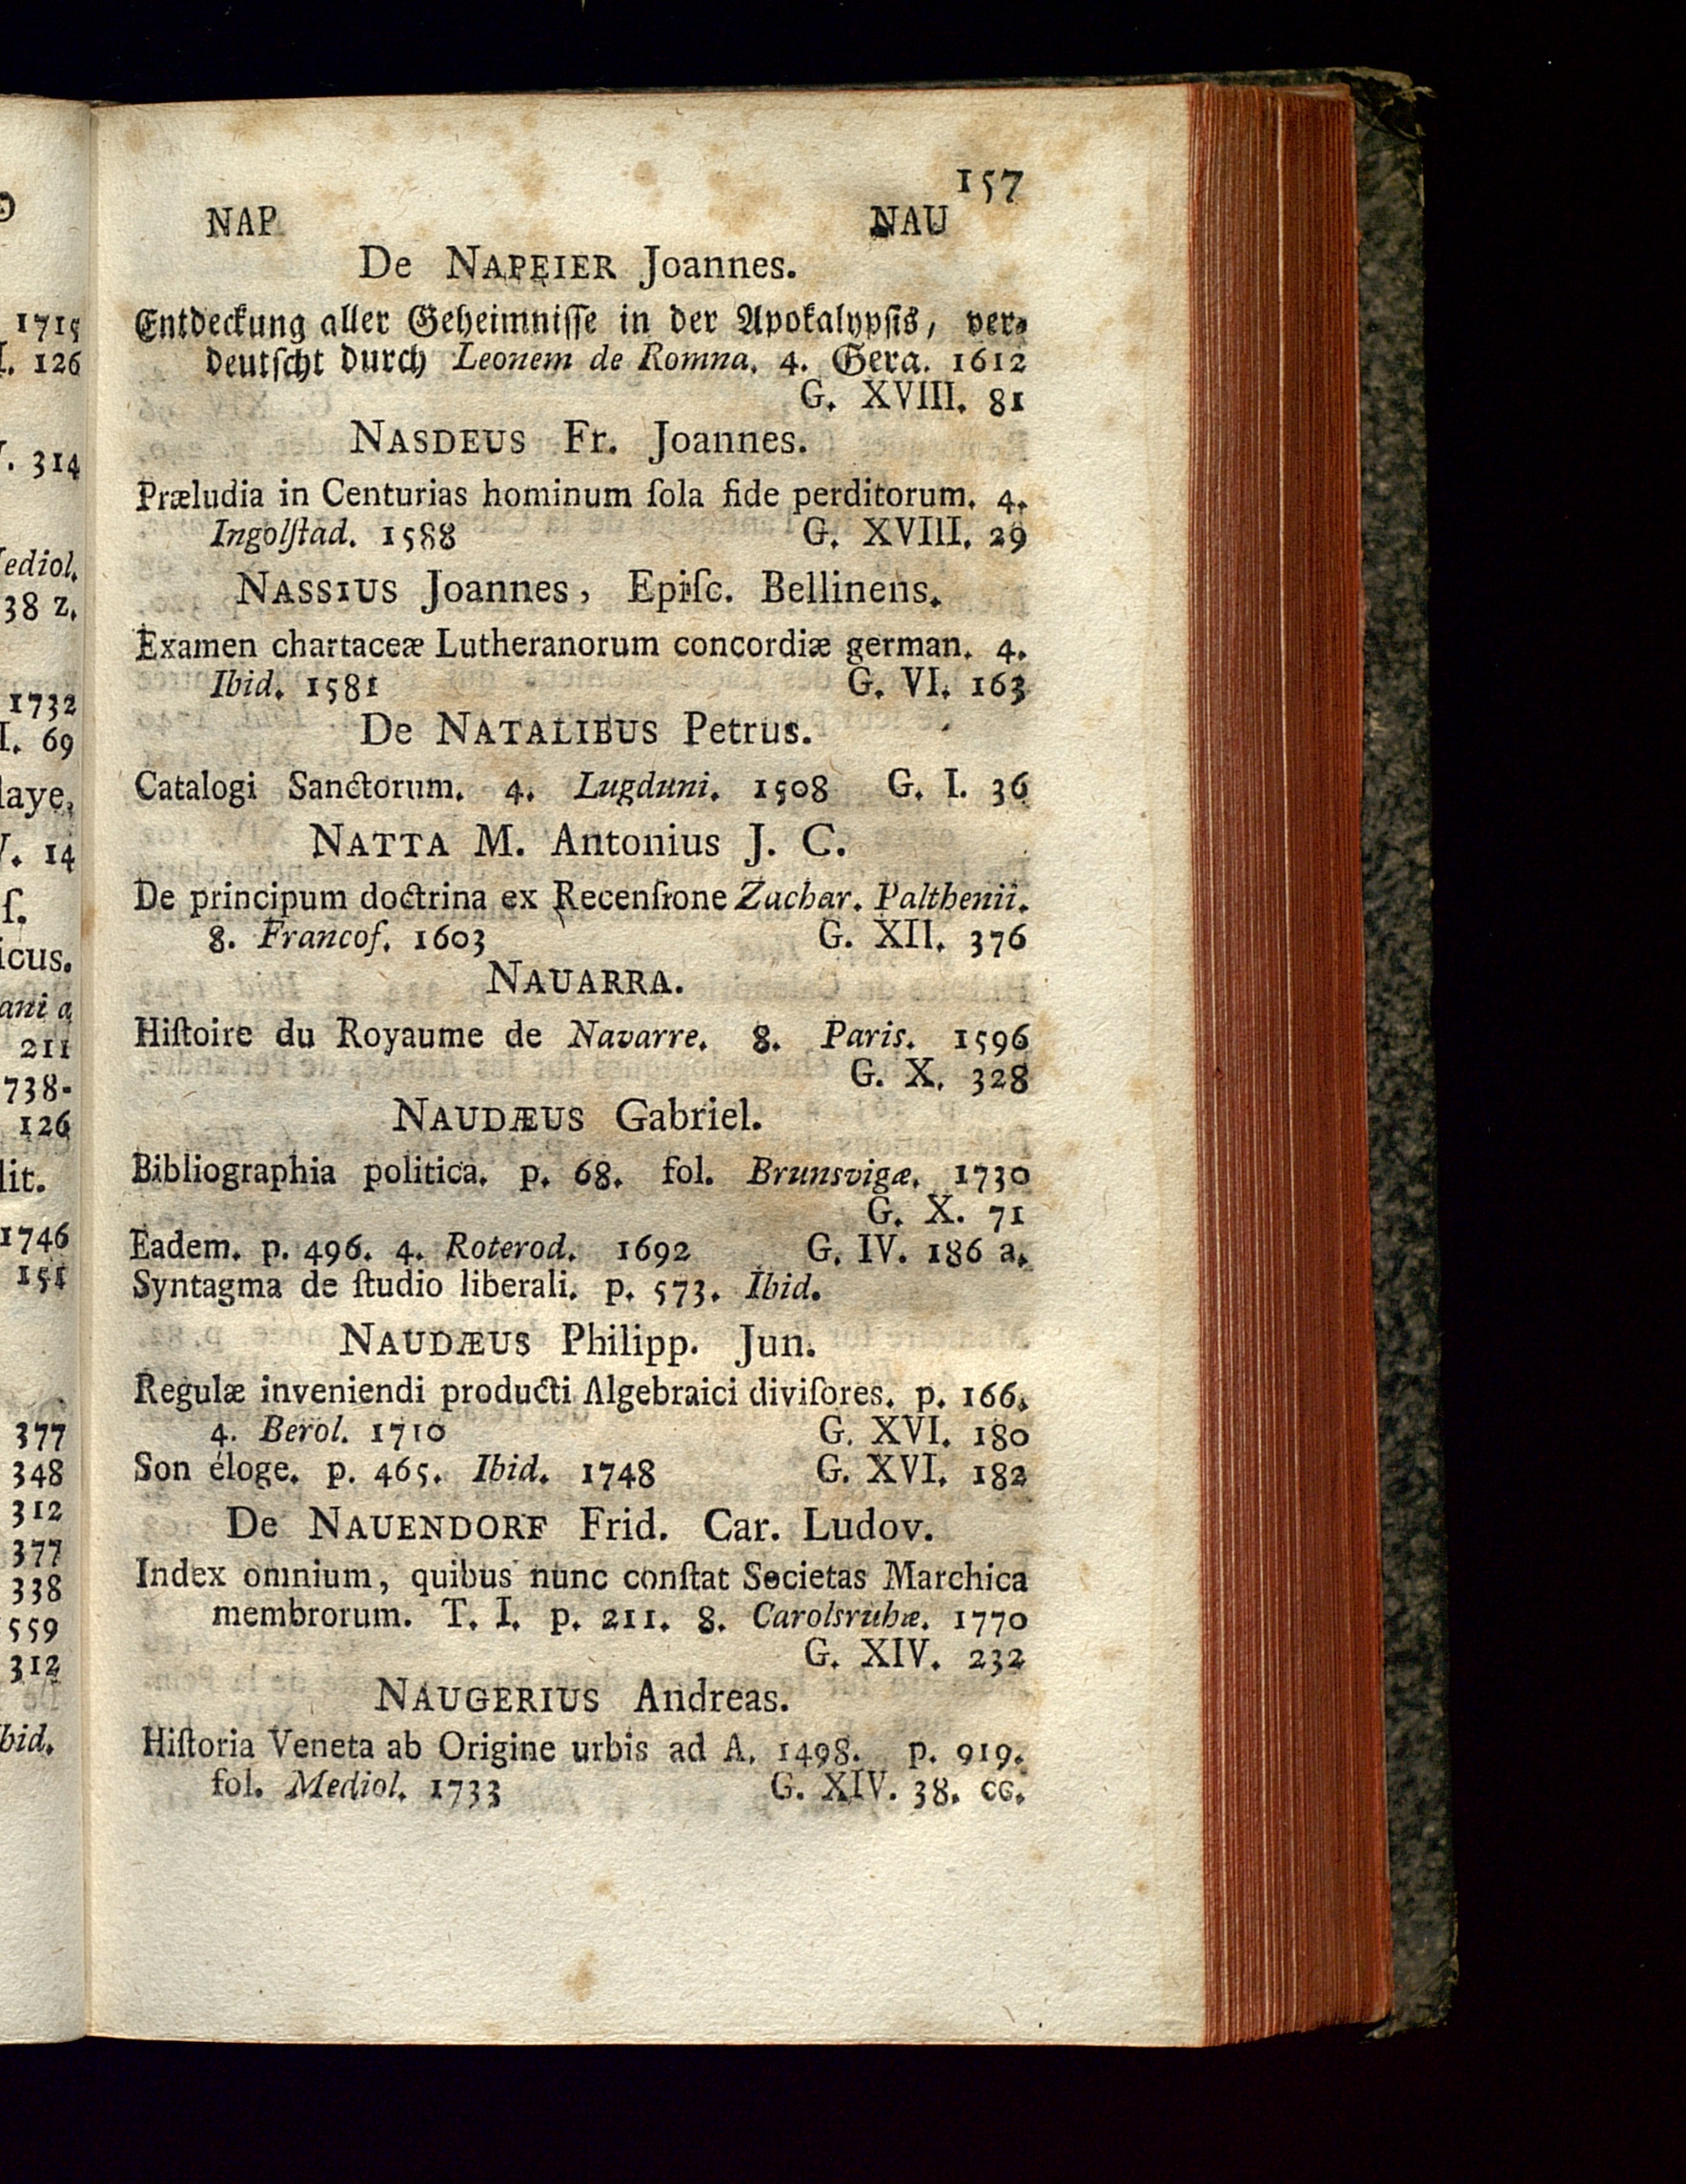 157
NAP NAU
De NAPEIER Joannes.
Entdeckung aller Geheimnisse in der Apokalypsis, ver-
deutscht durch Leonem de Romna. 4. Gera. 1612
G. XVIII. 81
NASDEUS Fr. Joannes.
Præludia in Centurias hominum ſola fide perditorum. 4.
Ingolſtad. 1588 G. XVIII. 29
NASSIUS Joannes, Epiſc. Bellinens.
Examen chartaceæ Lutheranorum concordiæ german. 4.
Ibid. 1581 G. VI. 163
De NATALIBUS Petrus.
Catalogi Sanctorum. 4. Lugduni. 1508 G. I. 36
NATTA M. Antonius J. C.
De principum doctrina ex Recenſione Zachar. Palthenii.
8. Francof. 1603 G. XII. 376
NAUARRA.
Hiſtoire du Royaume de Navarre. 8. Paris. 1596
G. X. 328
NAUDÆUS Gabriel.
Bibliographia politica. p. 68. fol. Brunsvigæ. 1730
G. X. 71
Eadem. p. 496. 4. Roterod. 1692 G. IV. 186 a.
Syntagma de ſtudio liberali. p. 573. Ibid.
NAUDÆUS Philipp. Jun.
Regulæ inveniendi producti Algebraici diviſores. p. 166.
4. Berol. 1710 G. XVI. 180
Son éloge. p. 465. Ibid. 1748 G. XVI. 182
De NAUENDORF Frid. Car. Ludov.
Index omnium, quibus nunc conſtat Societas Marchica
membrorum. T. I. p. 211. 8. Carolsruhæ. 1770
G. XIV. 232
NAUGERIUS Andreas.
Hiſtoria Veneta ab Origine urbis ad A. 1498. p. 919.
fol. Mediol. 1733 G. XIV. 38. cc.
1715
126
314
38 z.
1732
69
14
211
126
1746
151
377
348
312
377
338
559
312